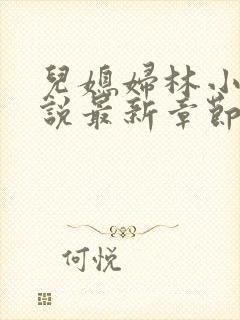 兒媳婦林小
說最新章節
何悅